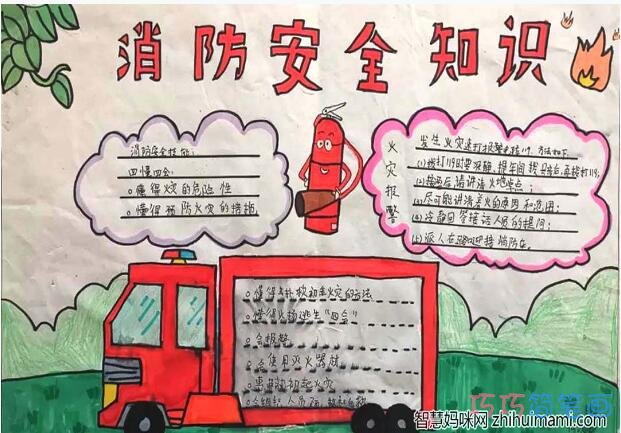 消防安全知识
消防安全技能:
四懂四会:
○懂得火灾的危险性
○懂得预防火灾的措施
火灾报警
发生火灾速打报警电话119,方法如下
(1)拨打119时要沉着
(2)接通后请讲清火地点;
(3)尽可能讲清着火的原因和范围;
(4)冷静回答接话人员的提问;
(5)派人在路口迎接消防车。
○懂得扑救初起火灾的方法
○懂得火场逃生"四会"
○会报警
○会使用灭火器材
初起火灾
巧巧简笔画
智慧妈咪网 zhihuimami.com